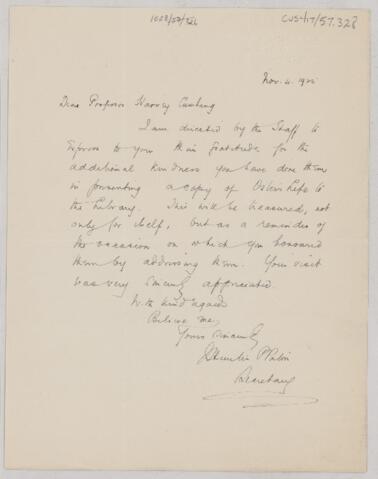 CUS417/57.328
Nov. 4. 1925
Dear Professor Harvey Cushing
I am directed by the Staff to
express to you their gratitude for the
additional kindness you have done them
in presenting a copy of Osler's Life to
the Library. This will be treasured, not
only for itself, but as a reminder of
the occasion on which you honoured
them by addressing them. Your visit
was very sincerely appreciated.
With kind regards
Believe me,
Yours sincerely
Secretary